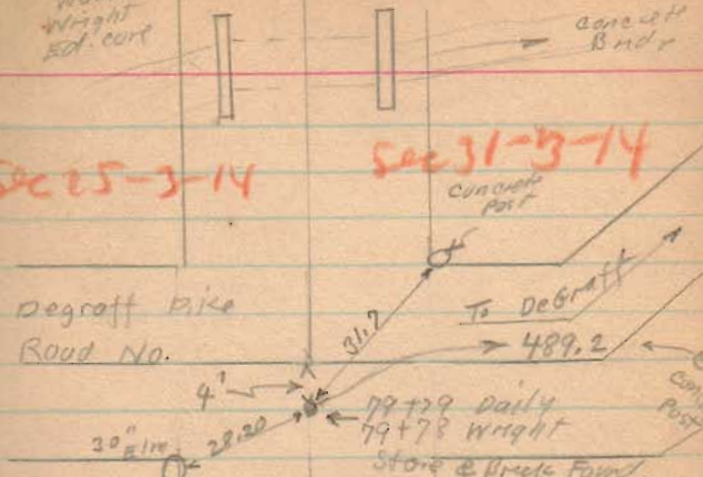 Wright
Ed. cure
Concrete
Bndr
Sec 25-3-14
Sec 31-3-14
Concrete
Post
Degraff Pike
Road No.
To DeGraff
31.7
489.2
4'
79+79 Daily
79+78 Wright
30" Elm
28.20
Conc
Post
Stone & Brick Found